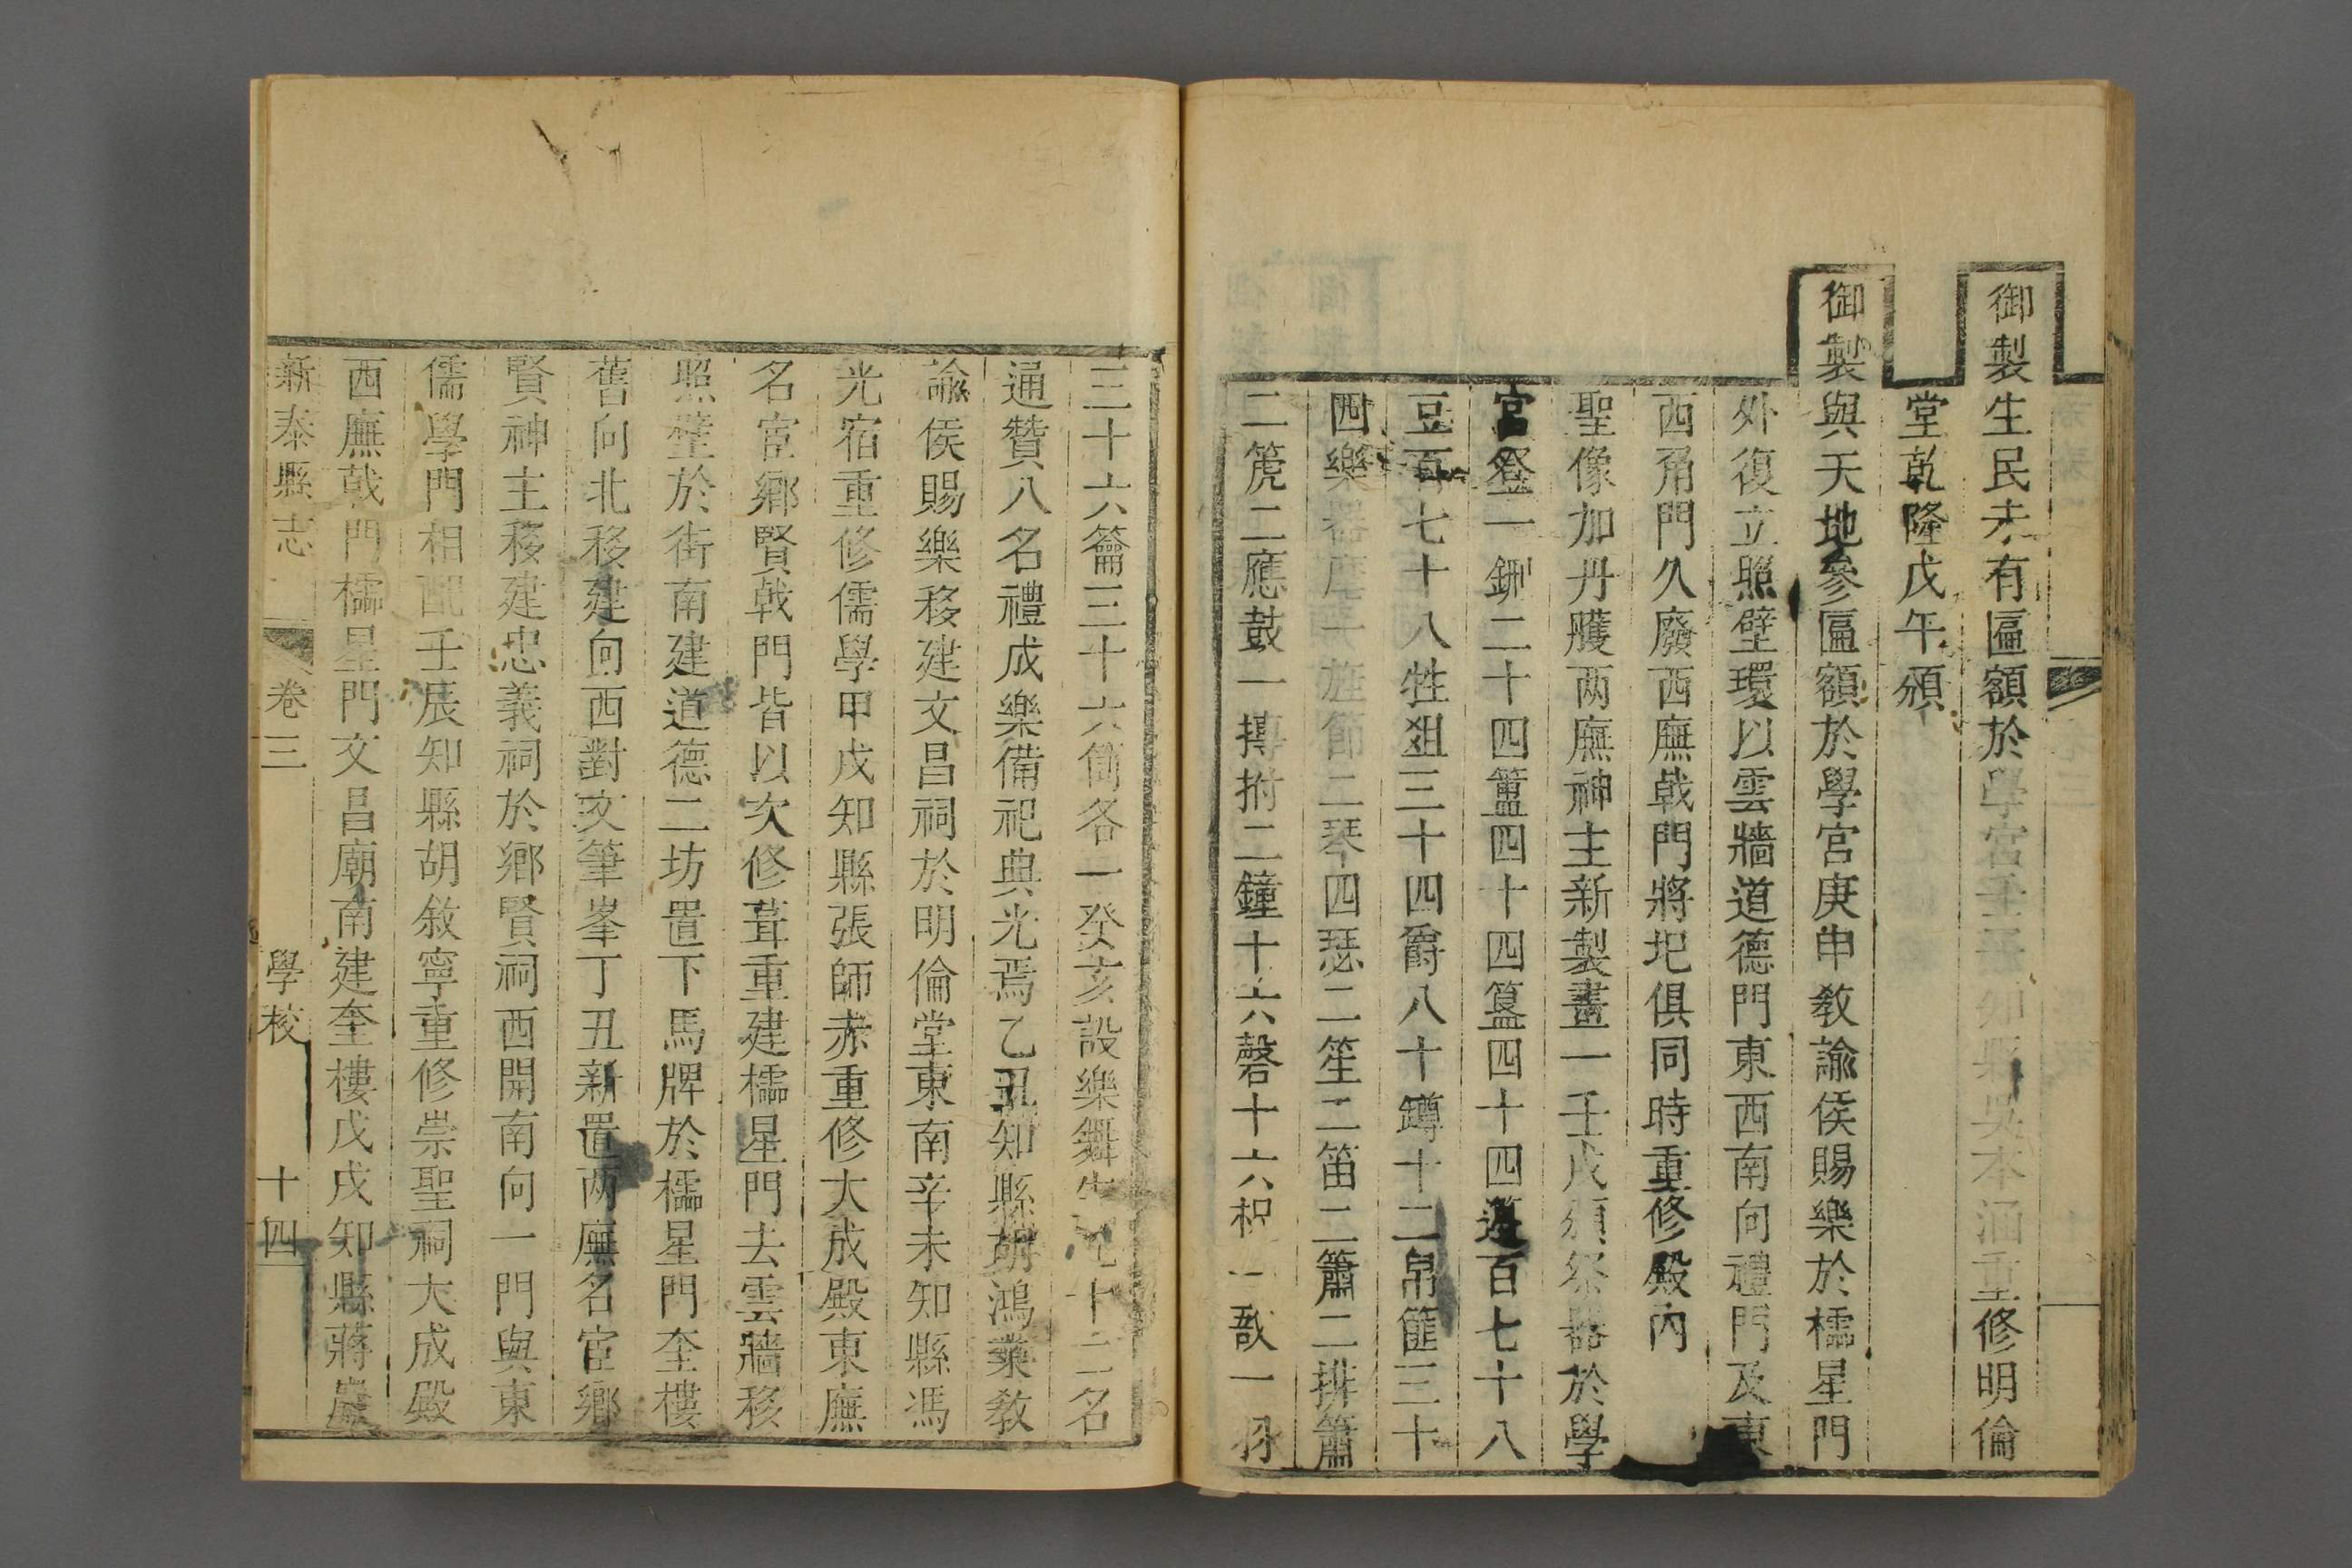 御製生民未有匾額於學宮壬子知縣吳本涵重修明倫
堂乾隆戊午頒
御製與天地參匾額於學宮庚申教諭侯賜樂於櫺星門
外復立照壁環以雲牆道德門東西南向禮門及東
西角門久廢西廡戟門將圯俱同時重修殿內
聖像加丹雘两廡神主新製畫一壬戌頒祭器於學
宮登一鉶二十四簠四十四簋四十四籩百七十八
豆百七十八牲俎三十四爵八十罇十二帛篚三十
四樂器麾一旌節二琴四瑟二笙二笛二簫二排簫
二箎二應鼓一摶拊二鐘十六磬十六柷一敔一羽
三十六籥三十六簡各一癸亥設樂舞生九十二名
通贊八名禮成樂備祀典光焉乙丑知縣胡鴻業教
諭侯賜樂移建文昌祠於明倫堂東南辛未知縣馮
光宿重修儒學甲戌知縣張師赤重修大成殿東廡
名宦鄉賢戟門皆以次修葺重建櫺星門去雲牆移
照壁於街南建道德二坊置下馬牌於櫺星門奎樓
舊向北移建向西對文筆峯丁丑新置两廡名宦鄉
賢神主移建忠義祠於鄉賢祠西開南向一門與東
儒學門相配壬辰知縣胡敘寧重修崇聖祠大成殿
西廡戟門櫺星門文昌廟南建奎樓戊戌知縣蔣巖
新泰縣志 卷三 學校 十四